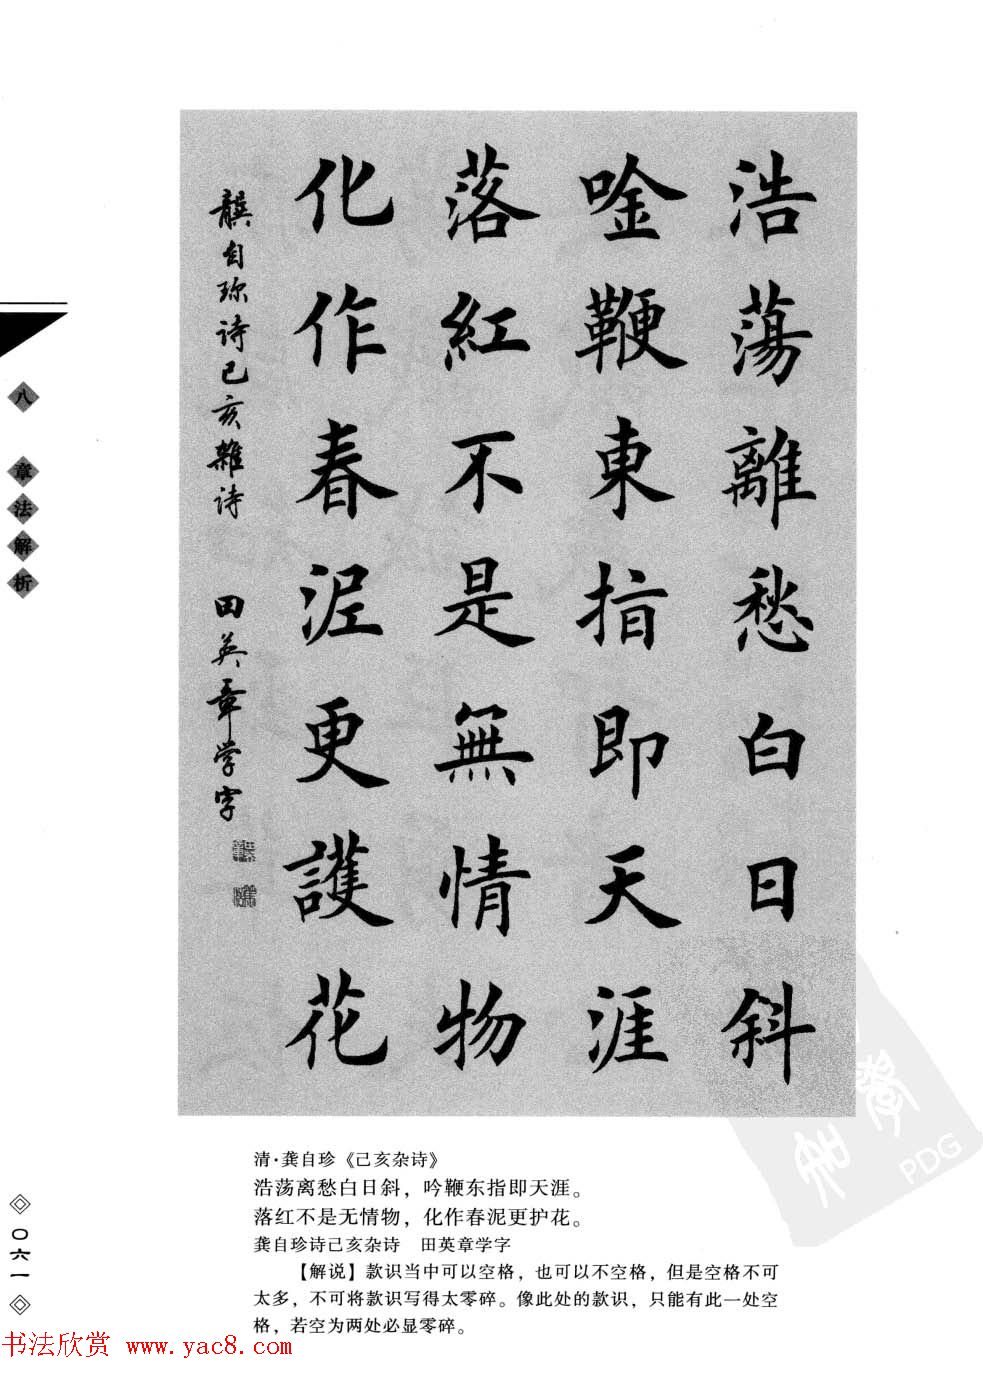 浩蕩離愁白日斜
唫鞭東指即天涯
落紅不是無情物
化作春泥更護花
龔自珍诗己亥雜诗 田英章学字
八 章法解析
清·龚自珍《己亥杂诗》
浩荡离愁白日斜，吟鞭东指即天涯。
落红不是无情物，化作春泥更护花。
龚自珍诗己亥杂诗 田英章学字
【解说】款识当中可以空格，也可以不空格，但是空格不可
太多，不可将款识写得太零碎。像此处的款识，只能有此一处空
格，若空为两处必显零碎。
〇六一
PDG
书法欣赏 www.yac8.com